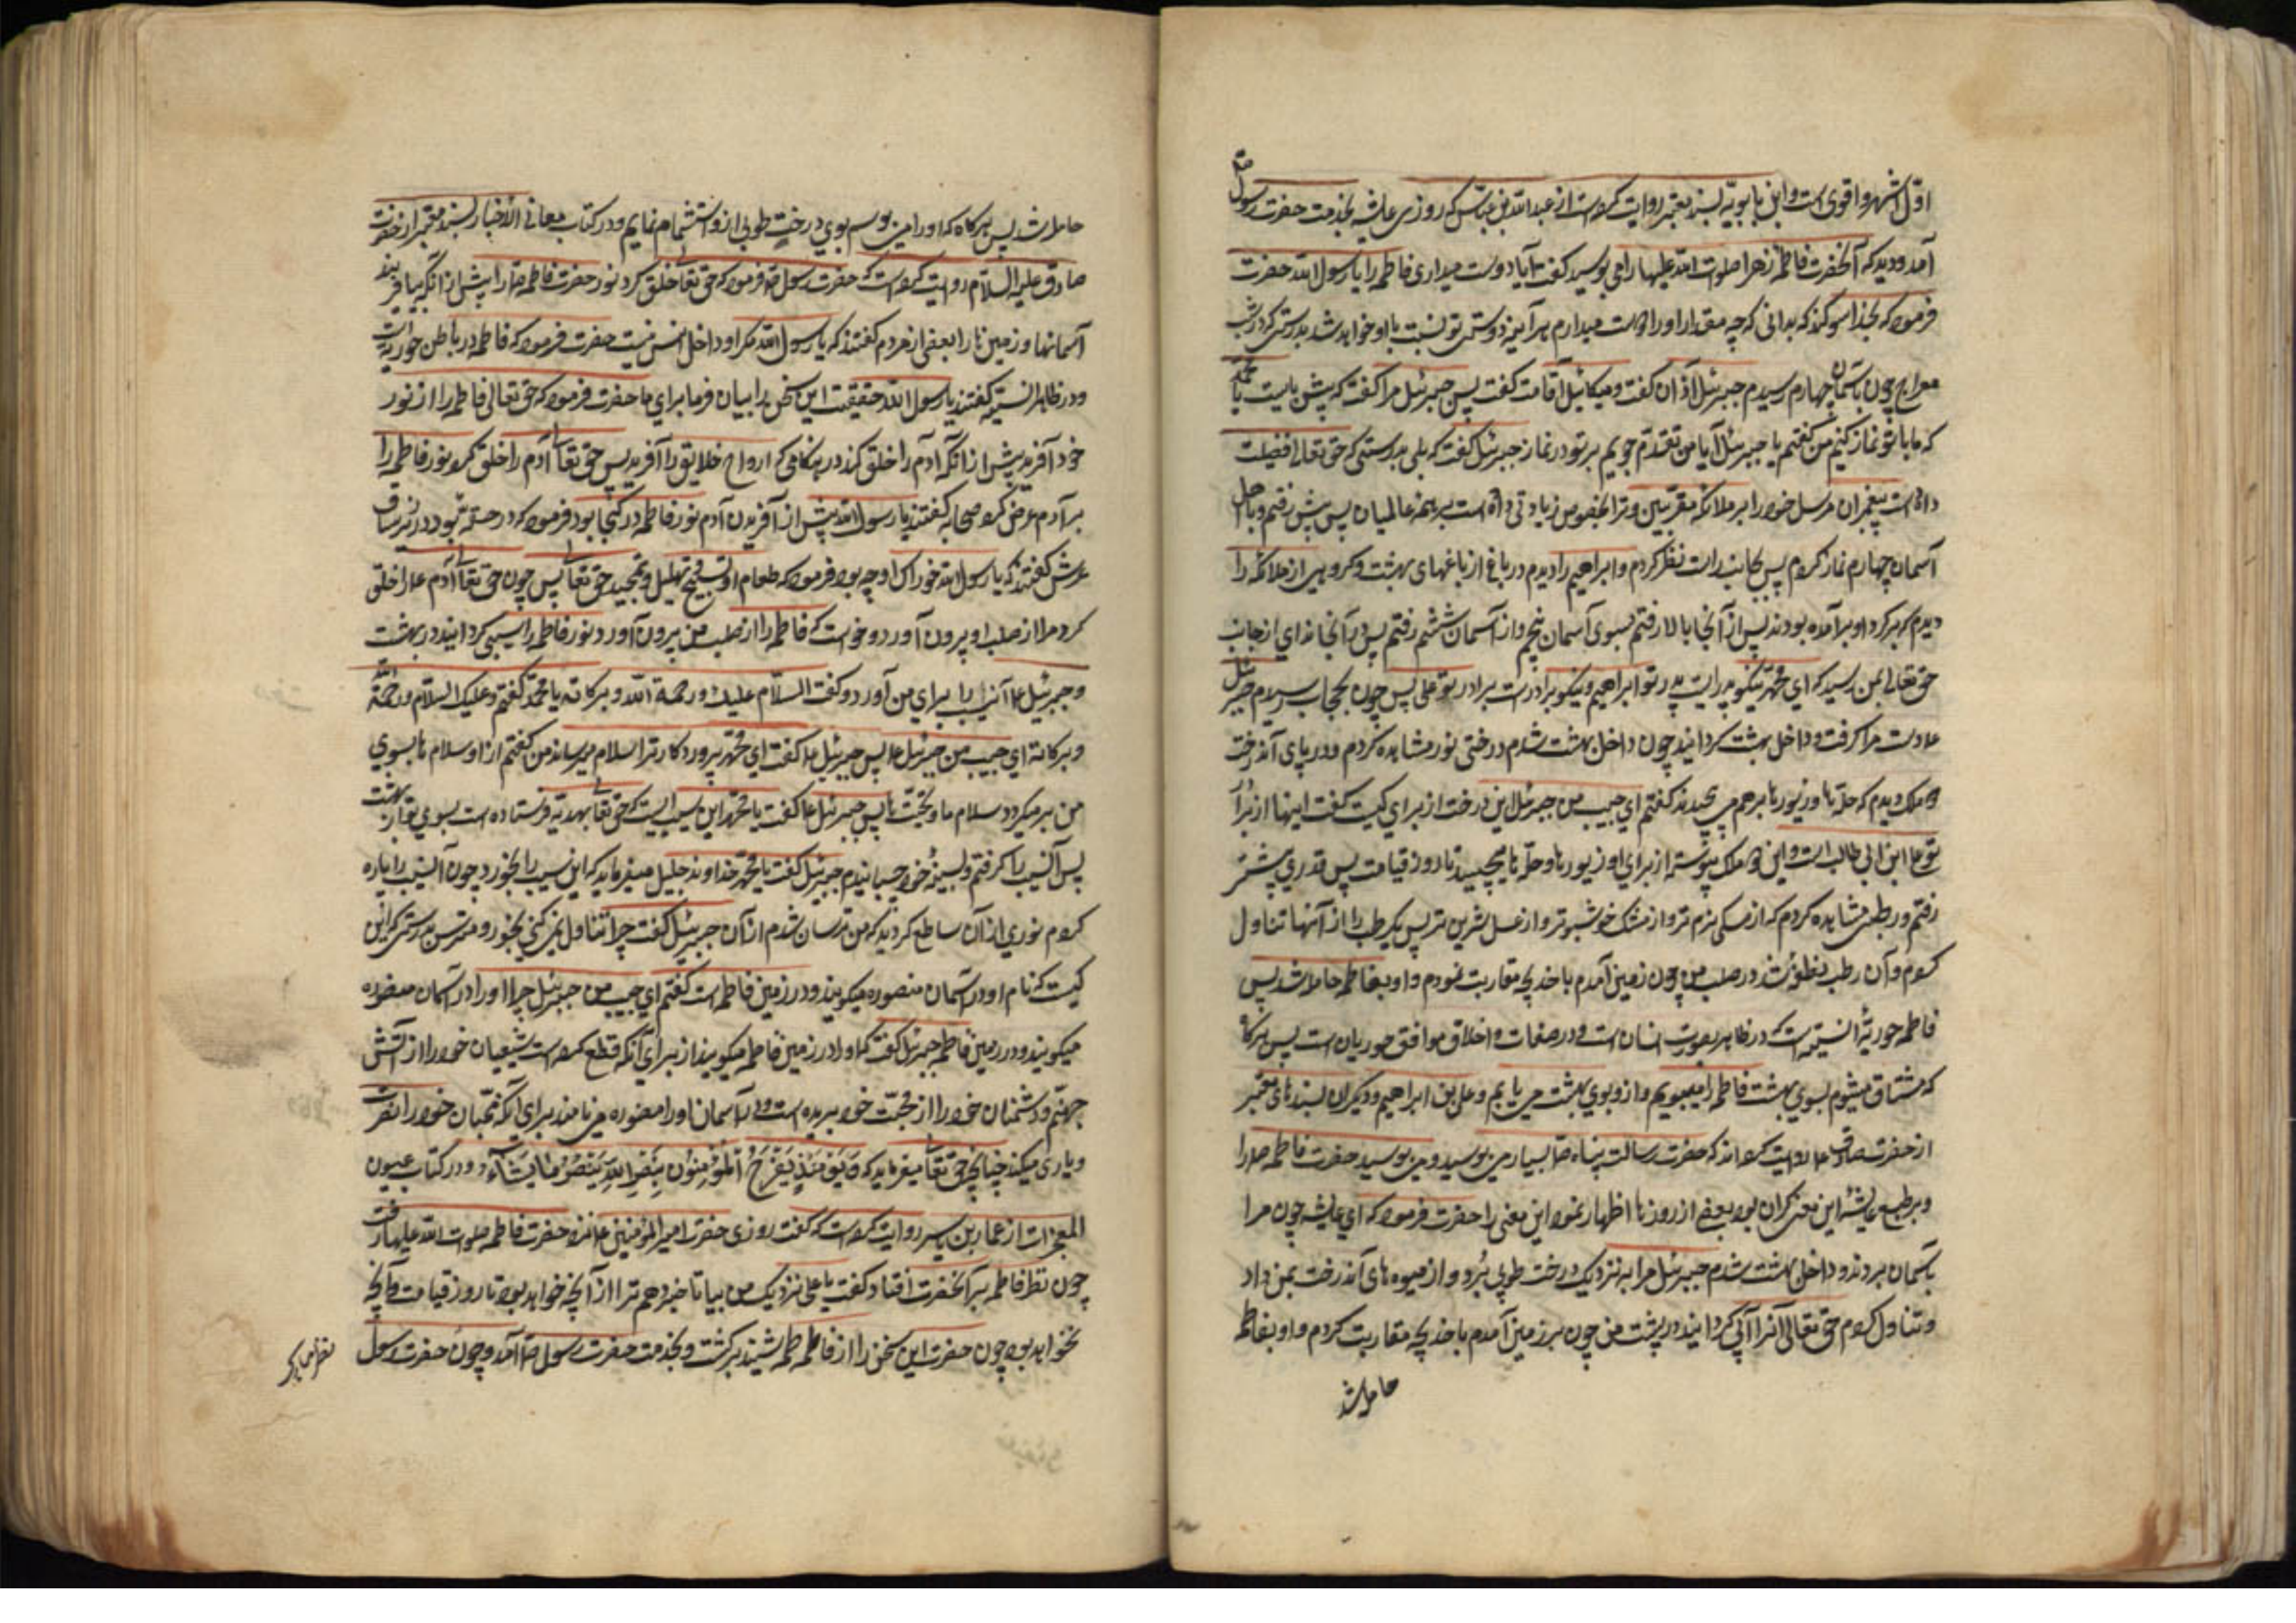 اوّل اشهر و اقوی است و ابن بابویه بسند معتبر روایت کرده است از عبدالله بن عبّاس که روزی عایشه بخدمت حضرت رسول ص
آمد و دید که آنحضرت فاطمه زهرا صلوات الله علیها را می بوسید گفت آیا دوست میداری فاطمه را یا رسول الله حضرت
فرمود که بخدا سوگند که بدانی که چه مقدار او را دوست میدارم هر آینه دوستی تو نسبت باو خواهد شد بدرستی که در شب
معراج چون بآسمان چهارم رسیدم جبرئیل اذان گفت و میکائیل اقامت گفت پس جبرئیل مرا گفت که پیش بایست یا محمد
که ما با تو نماز کنیم من گفتم یا جبرئیل آیا من تقدّم جویم بر تو در نماز جبرئیل گفت که بلی بدرستی که حق تعالی فضیلت
داده است پیغمبران مرسل خود را بر ملائکه مقرّبین و ترا بخصوص زیادتی داده است بر همه عالمیان پس پیش رفتم و با اهل
آسمان چهارم نماز کردم پس بجانب راست نظر کردم و ابراهیم را دیدم در باغی از باغهای بهشت و گروهی از ملائکه را
دیدم که بر گرد او برآمده بودند پس از آنجا بالا رفتم بسوی آسمان پنجم و از آسمان ششم رفتم پس در آنجا ندای از جانب
حق تعالی بمن رسید که ای محمد نیکو پدریست پدر تو ابراهیم و نیکو برادریست برادر تو علی پس چون بحجاب رسیدم جبرئیل
دست مرا گرفت و داخل بهشت گردانید چون داخل بهشت شدم درختی نور مشاهده کردم و در پای آندرخت
دو ملک دیدم که حلّه ها و زیورها بر هم می پیچیدند گفتم ای حبیب من جبرئیل این درخت از برای کیست گفت اینها از برادر
تو علی ابن ابی طالب است و این دو ملک پیوسته از برای او زیورها و حلّه ها میپیچند تا روز قیامت پس قدری پیشتر
رفتم و رطبی مشاهده کردم که از مسکه نرم تر و از مشک خوشبوتر و از عسل شیرین تر پس یک رطب را از آنها تناول
کردم و آن رطب نطفه شد در صلب من چون بزمین آمدم با خدیجه مقاربت نمودم و او بفاطمه حامله شد پس
فاطمه حوریه انسیّه است که در ظاهر بصورت انسان است و در صفات و اخلاق موافق حوریان است پس هرگاه
که مشتاق میشوم ببوی بهشت فاطمه را میبویم و از او بوی بهشت می یابم و علی بن ابراهیم و دیگران بسندهای معتبر
از حضرت صادق ع روایت کرده اند که حضرت رسالت پناه ص بسیار می بوسید و می بوسید حضرت فاطمه ص را
و بر طبع عایشه این معنی گران بود بعضی از روزها اظهار نمود این معنی را حضرت فرمود که ای عایشه چون مرا
بآسمان بردند و داخل بهشت شدم جبرئیل مرا به نزدیک درخت طوبی برد و از میوه های آندرخت بمن داد
و تناول کردم حق تعالی آنرا آبی گردانید در پشت من چون بر زمین آمدم با خدیجه مقاربت کردم و او بفاطمه
حامله شد
حامله شد پس هرگاه که او را می بوسم بوی درخت طوبی از او استشمام نمایم و در کتاب معانی الاخبار بسند معتبر از حضرت
صادق علیه السلام روایت کرده است که حضرت رسول ص فرمود که حق تعالی خلق کرد نور حضرت فاطمه ص را پیش از آنکه بیافریند
آسمانها و زمین را بعضی از مردم گفتند که یا رسول الله مگر او داخل انس نیست حضرت فرمود که فاطمه در باطن حوریه است
و در ظاهر انسیّه گفتند یا رسول الله حقیقت این سخن را بیان فرما برای ما حضرت فرمود که حق تعالی فاطمه را از نور
خود آفرید پیش از آنکه آدم را خلق کند در هنگامی که ارواح خلایق را آفرید پس حق تعالی آدم را خلق کرد نور فاطمه را
بر آدم عرض کرد صحابه گفتند یا رسول الله پیش از آفریدن آدم نور فاطمه در کجا بود فرمود که در حقّه بود در زیر ساق
عرش گفتند که یا رسول الله خوراک او چه بود فرمود که طعام او تسبیح و تهلیل و تمجید حق تعالی پس چون حق تعالی آدم ع را خلق
کرد مرا از صلب او بیرون آورد و خواست که فاطمه را از صلب من بیرون آورد نور فاطمه را سیبی گردانید در بهشت
و جبرئیل ع آن سیب را برای من آورد و گفت السلام علیک و رحمة الله و برکاته یا محمد گفتم و علیک السلام و رحمة الله
و برکاته ای حبیب من جبرئیل ع پس جبرئیل ع گفت ای محمد پروردگار ترا سلام میرساند من گفتم از اوست سلامها بسوی
من برمیگردد سلام ما و تحیّت ما پس جبرئیل ع گفت یا محمد این سیبی است که حق تعالی بهدیه فرستاده است بسوی تو از بهشت
پس آن سیب را گرفتم و بسینه خود چسبانیدم جبرئیل گفت یا محمد خداوند جلیل میفرماید که این سیب را بخور و چون آن سیب را پاره
کردم نوری از آن ساطع گردید که من ترسان شدم از آن جبرئیل گفت چرا تناول نمی کنی بخور و مترس بدرستی که این نور
کیست که نام او در آسمان منصوره میگویند و در زمین فاطمه است گفتم ای حبیب من جبرئیل چرا او را در آسمان منصوره
میگویند و در زمین فاطمه جبرئیل گفت که او را در زمین فاطمه میگویند از برای آنکه قطع کرده است شیعیان خود را از آتش
جهنّم و دشمنان خود را از محبّت خود بریده است و در آسمان او را منصوره می نامند برای آنکه محبّان خود را نصرت
و یاری میکند چنانچه حق تعالی میفرماید که وَیَوْمَئِذٍ یَفْرَحُ الْمُؤْمِنُونَ بِنَصْرِ اللهِ یَنْصُرُ مَن یَشَاءُ و در کتاب عیون
المعجزات از عمار بن یاسر روایت کرده است که گفت روزی حضرت امیرالمؤمنین ع نزد حضرت فاطمه صلوات الله علیها رفت
چون نظر فاطمه بر آنحضرت افتاد گفت یا علی نزدیک من بیا تا خبر دهم ترا از آنچه خواهد بود تا روز قیامت و آنچه
نخواهد بود چون حضرت این سخن را از فاطمه شنید برگشت و بخدمت حضرت رسول ص آمد و چون حضرت رسول